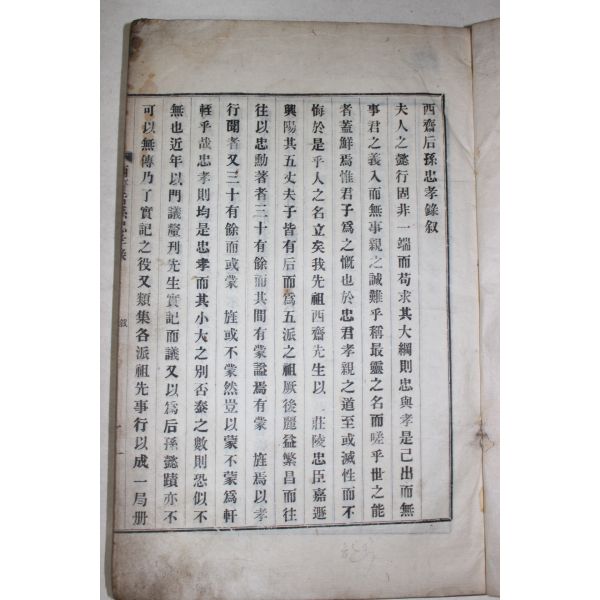 西齋后孫忠孝錄叙
夫人之懿行固非一端而苟求其大綱則忠與孝是已出而無
事君之義入而無事親之誠難乎稱最靈之名而嗟乎世之能
者蓋鮮焉惟君子爲之慨也於忠君孝親之道至或滅性而不
悔於是乎人之名立矣我先祖西齋先生以 莊陵忠臣嘉遯
興陽其五丈夫子皆有后而爲五派之祖厥後麗益繁昌而往
往以忠勳著者二十有餘而其間有蒙謚焉有蒙 旌焉以孝
行聞者又三十有餘而或蒙 旌或不蒙然豈以蒙不蒙爲軒
輊乎哉忠孝則均是忠孝而其小大之別否泰之數則恐似不
無也近年以門議釐刊先生實記而議又以爲后孫懿蹟亦不
可以無傳乃了實記之役又類集各派祖先事行以成一局册
叙